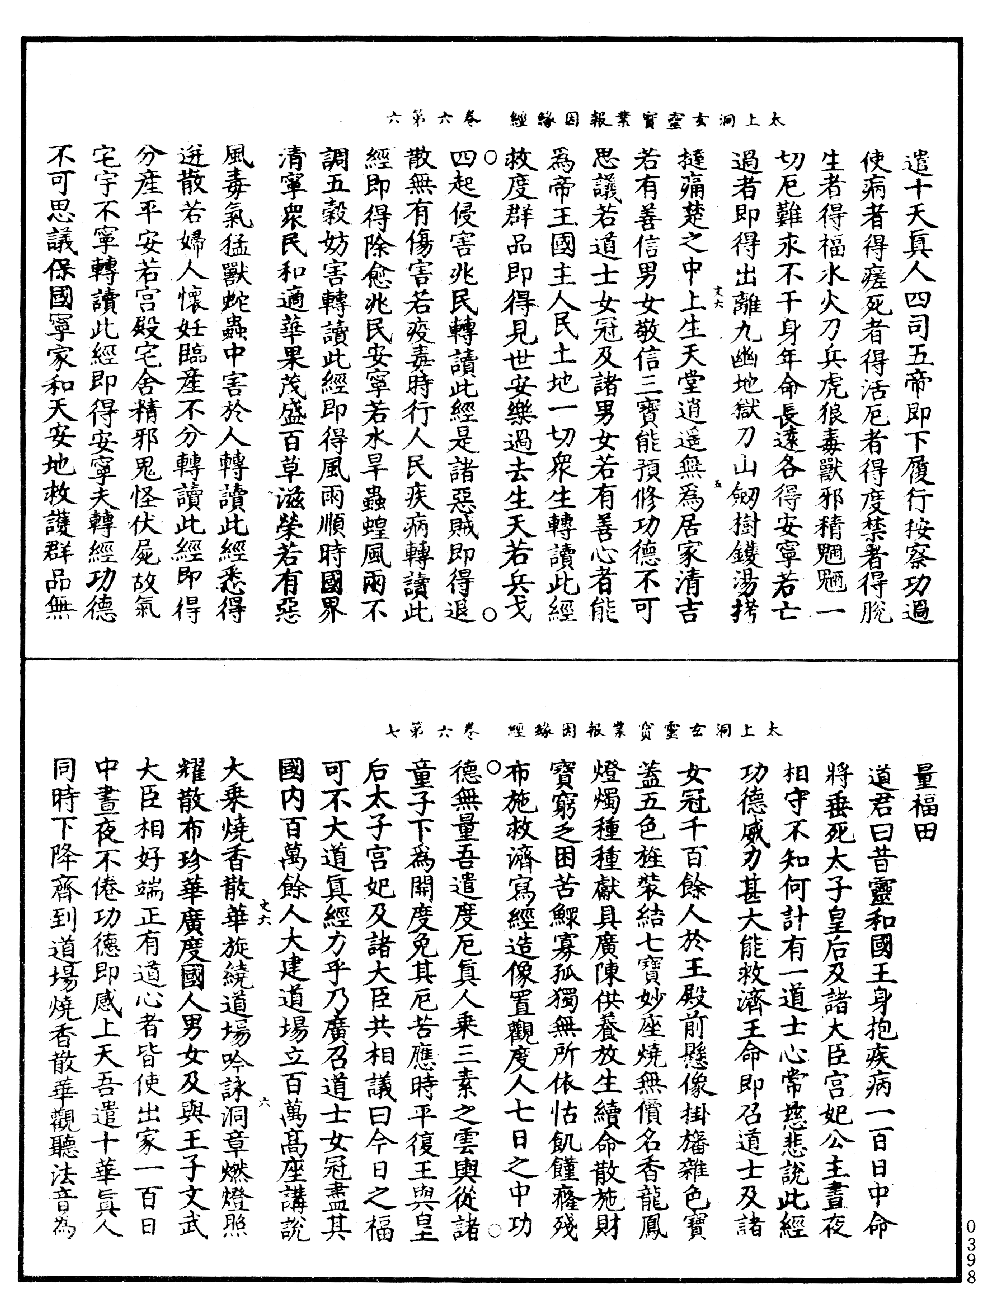 太上洞玄靈寶業報因緣經　卷六第六
遣十天真人四司五帝即下履行按察功過
使病者得瘥死者得活厄者得度禁者得脫
生者得福水火刀兵虎狼毒獸邪精魍魎一
切厄難永不干身年命長遠各得安寧若亡
過者即得出離九幽地獄刀山劒樹鑊湯拷
文六　五
撻痛楚之中上生天堂逍遥無為居家清吉
若有善信男女敬信三寶能預修功德不可
思議若道士女冠及諸男女若有善心者能
為帝王國主人民土地一切衆生轉讀此經
救度群品即得見世安樂過去生天若兵戈
四起侵害兆民轉讀此經是諸惡賊即得退
散無有傷害若疫毒時行人民疾病轉讀此
經即得除愈兆民安寧若水旱蟲蝗風雨不
調五穀妨害轉讀此經即得風雨順時國界
清寧衆民和適華果茂盛百草滋榮若有惡
風毒氣猛獸蛇蟲中害於人轉讀此經悉得
迸散若婦人懷妊臨産不分轉讀此經即得
分産平安若宮殿宅舍精邪鬼怪伏屍故氣
宅宇不寧轉讀此經即得安寧夫轉經功德
不可思議保國寧家和天安地救護群品無
太上洞玄靈寶業報因緣經　卷六第七
量福田
道君曰昔靈和國王身抱疾病一百日中命
將垂死太子皇后及諸大臣宮妃公主晝夜
相守不知何計有一道士心常慈悲說此經
功德威力甚大能救濟王命即召道士及諸
女冠千百餘人於王殿前懸像掛旛雜色寶
蓋五色旌裝結七寶妙座燒無價名香龍鳳
燈燭種種獻具廣陳供養放生續命散施財
寶窮乏困苦鰥寡孤獨無所依怙飢饉癃殘
布施救濟寫經造像置觀度人七日之中功
德無量吾遣度厄真人乗三素之雲輿從諸
童子下為開度免其厄苦應時平復王與皇
后太子宮妃及諸大臣共相議曰今日之福
可不大道真經力乎乃廣召道士女冠盡其
國内百萬餘人大建道場立百萬高座講說
文六　六
大乗燒香散華旋繞道場吟詠洞章燃燈照
耀散布珍華廣度國人男女及與王子文武
大臣相好端正有道心者皆使出家一百日
中晝夜不倦功德即感上天吾遣十華真人
同時下降齊到道場燒香散華觀聽法音為
0398